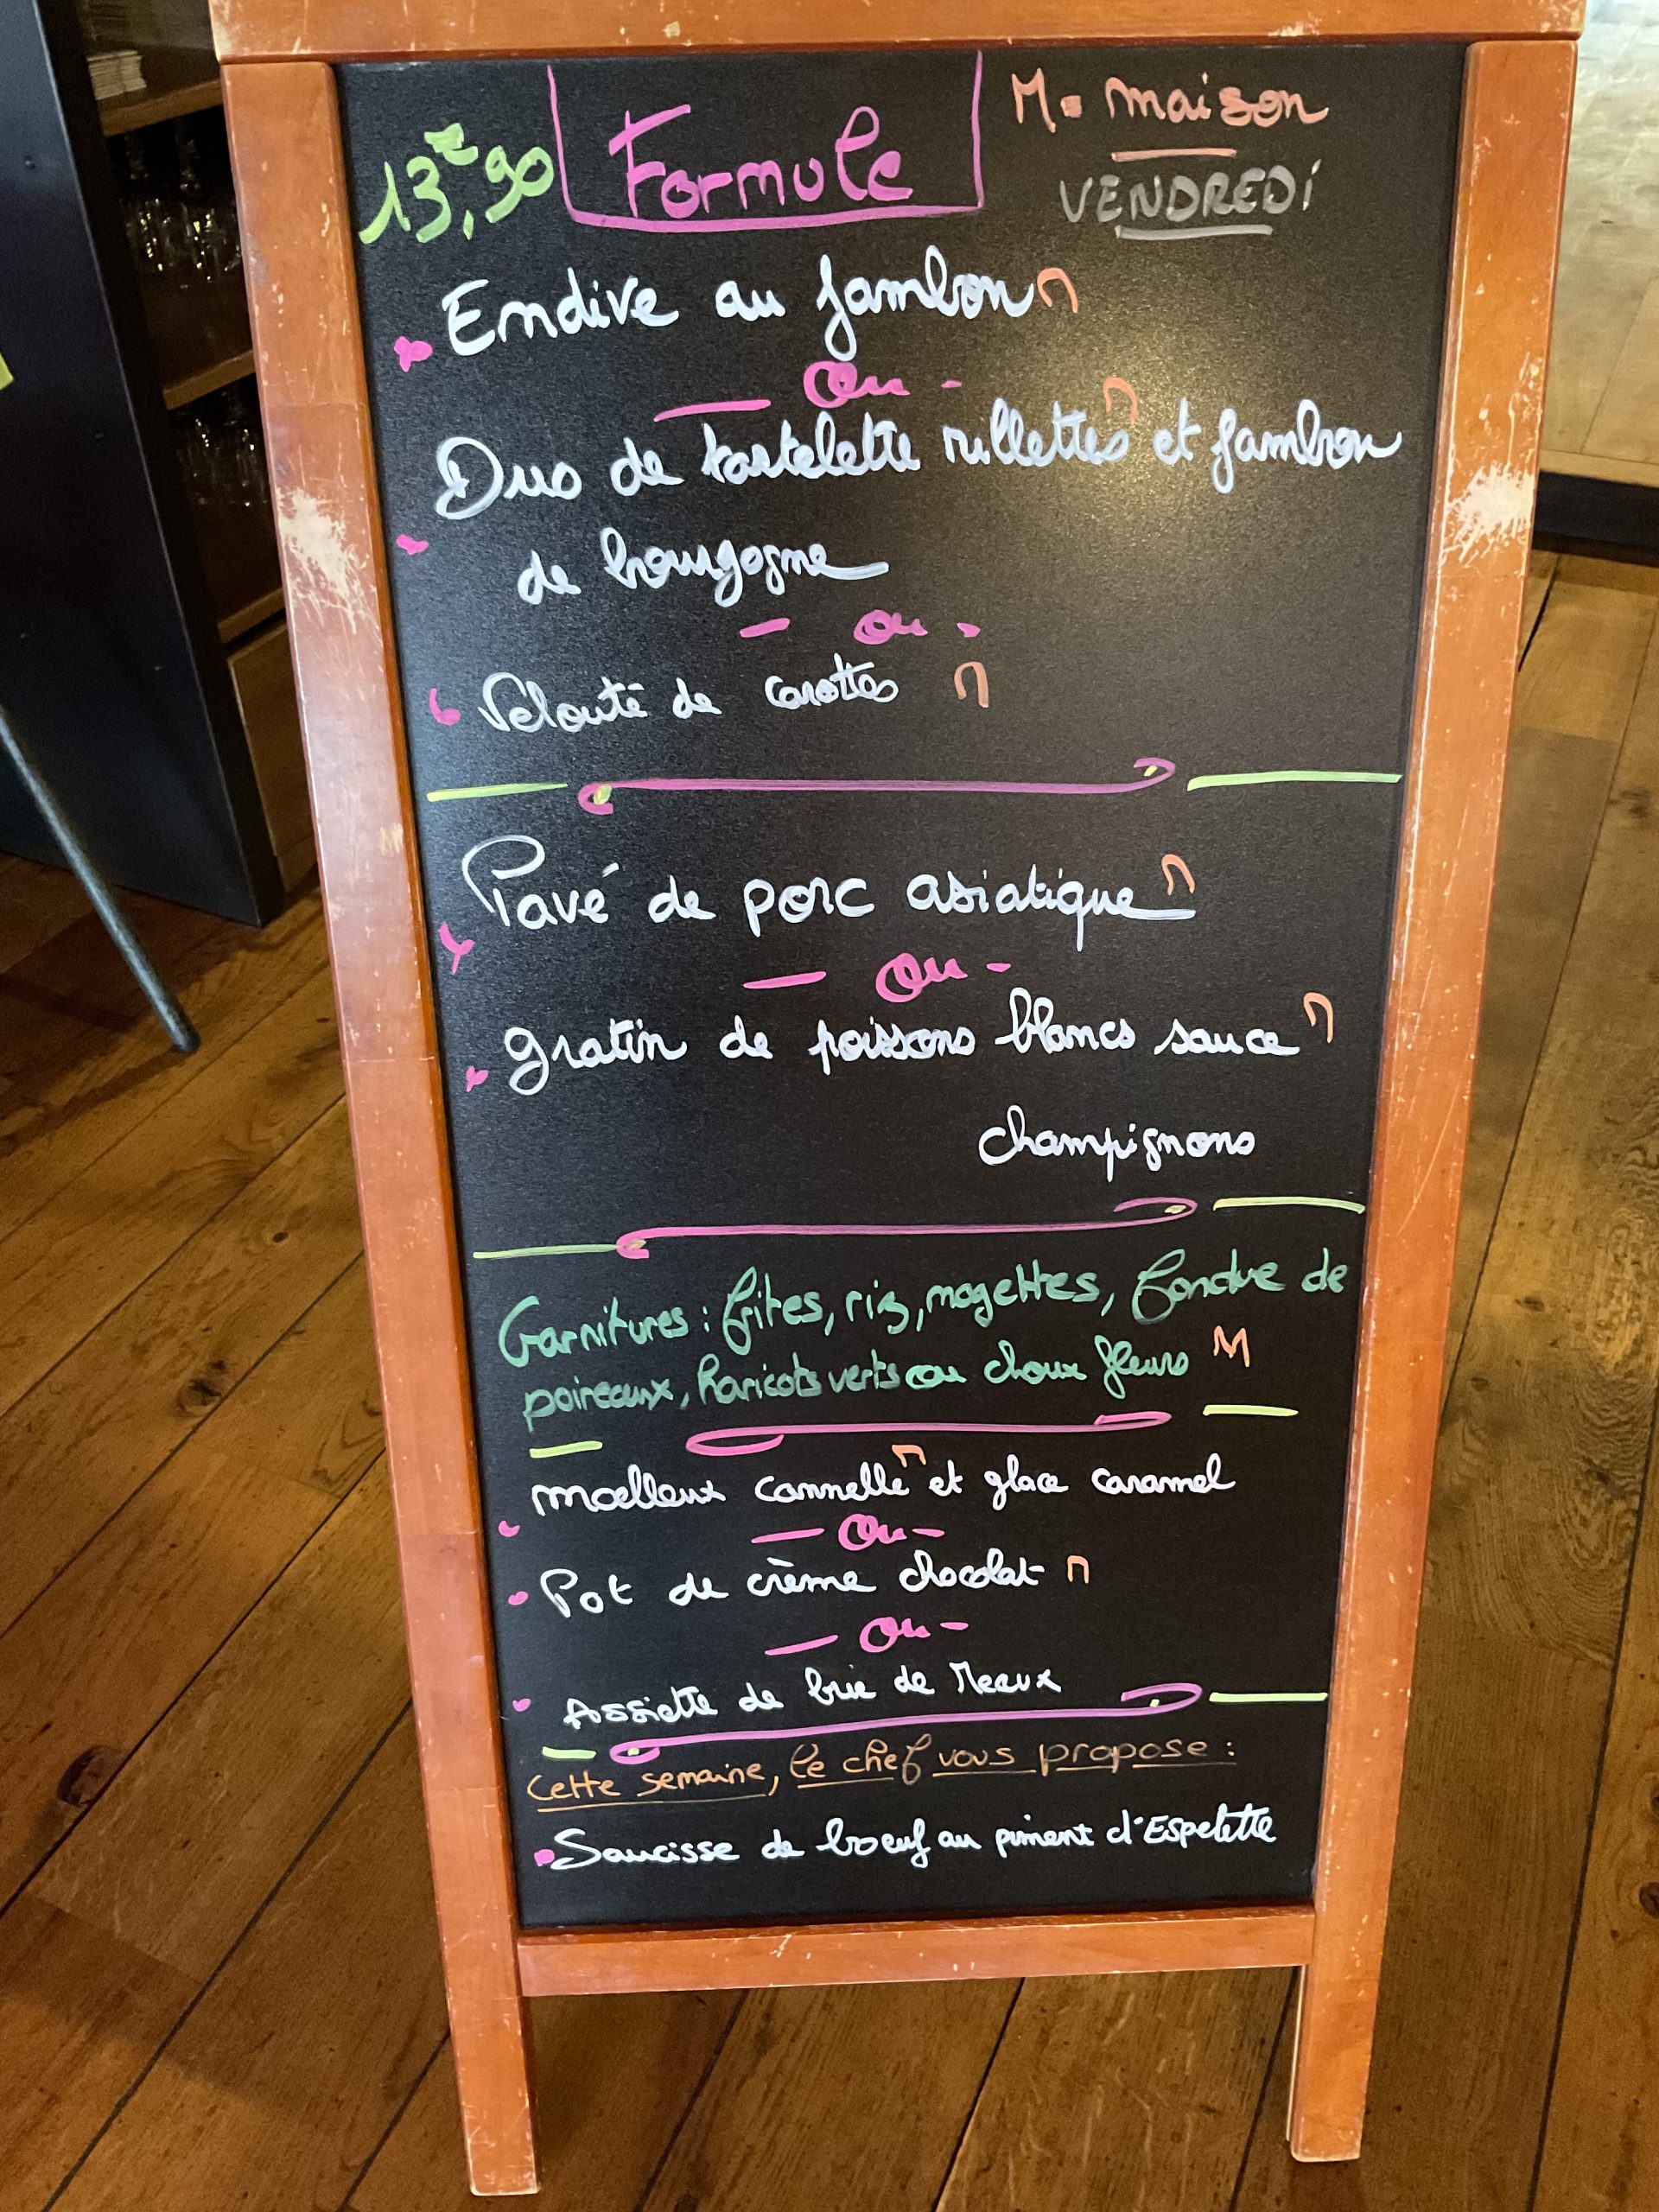 13€,90 Formule M = maison
VENDREDI
Endive au jambon M
Ou
Duo de tartelette rillettes M et jambon
de bourgogne
ou
Velouté de carottes M
Pavé de porc asiatique M
Ou
gratin de poissons blancs sauce M
champignons
Garnitures : frites, riz, mogettes, fondue de
poireaux, haricots verts ou choux fleurs M
moelleux cannelle M et glace caramel
Ou
Pot de crème chocolat M
Ou
Assiette de brie de Meaux
Cette semaine, le chef vous propose :
Saucisse de boeuf au piment d'Espelette